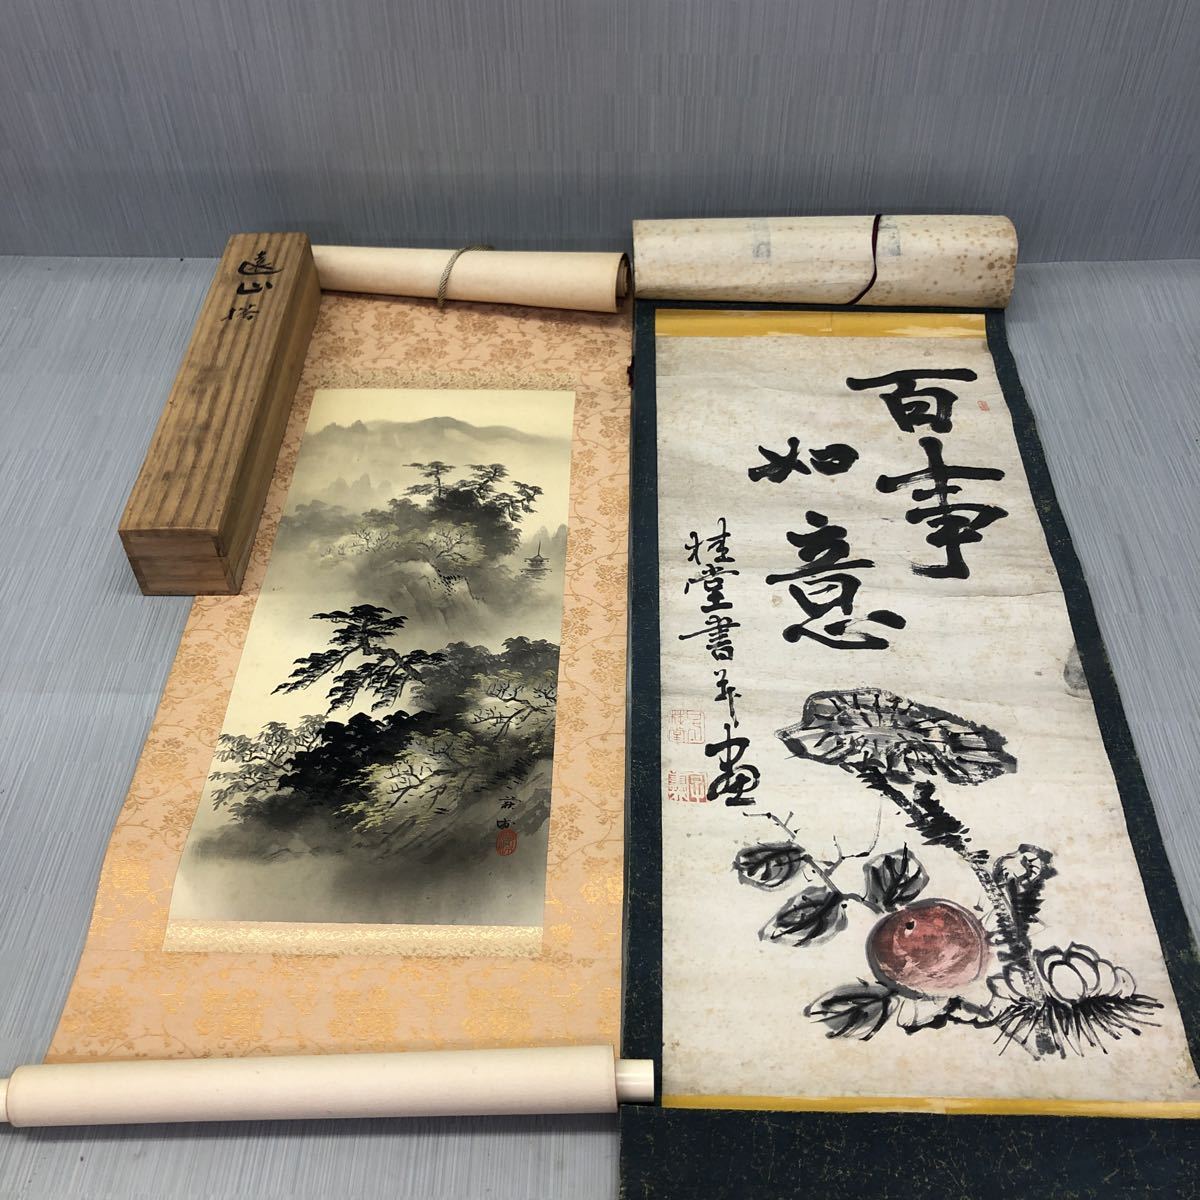 遠山
百事
如意
桂堂書并画